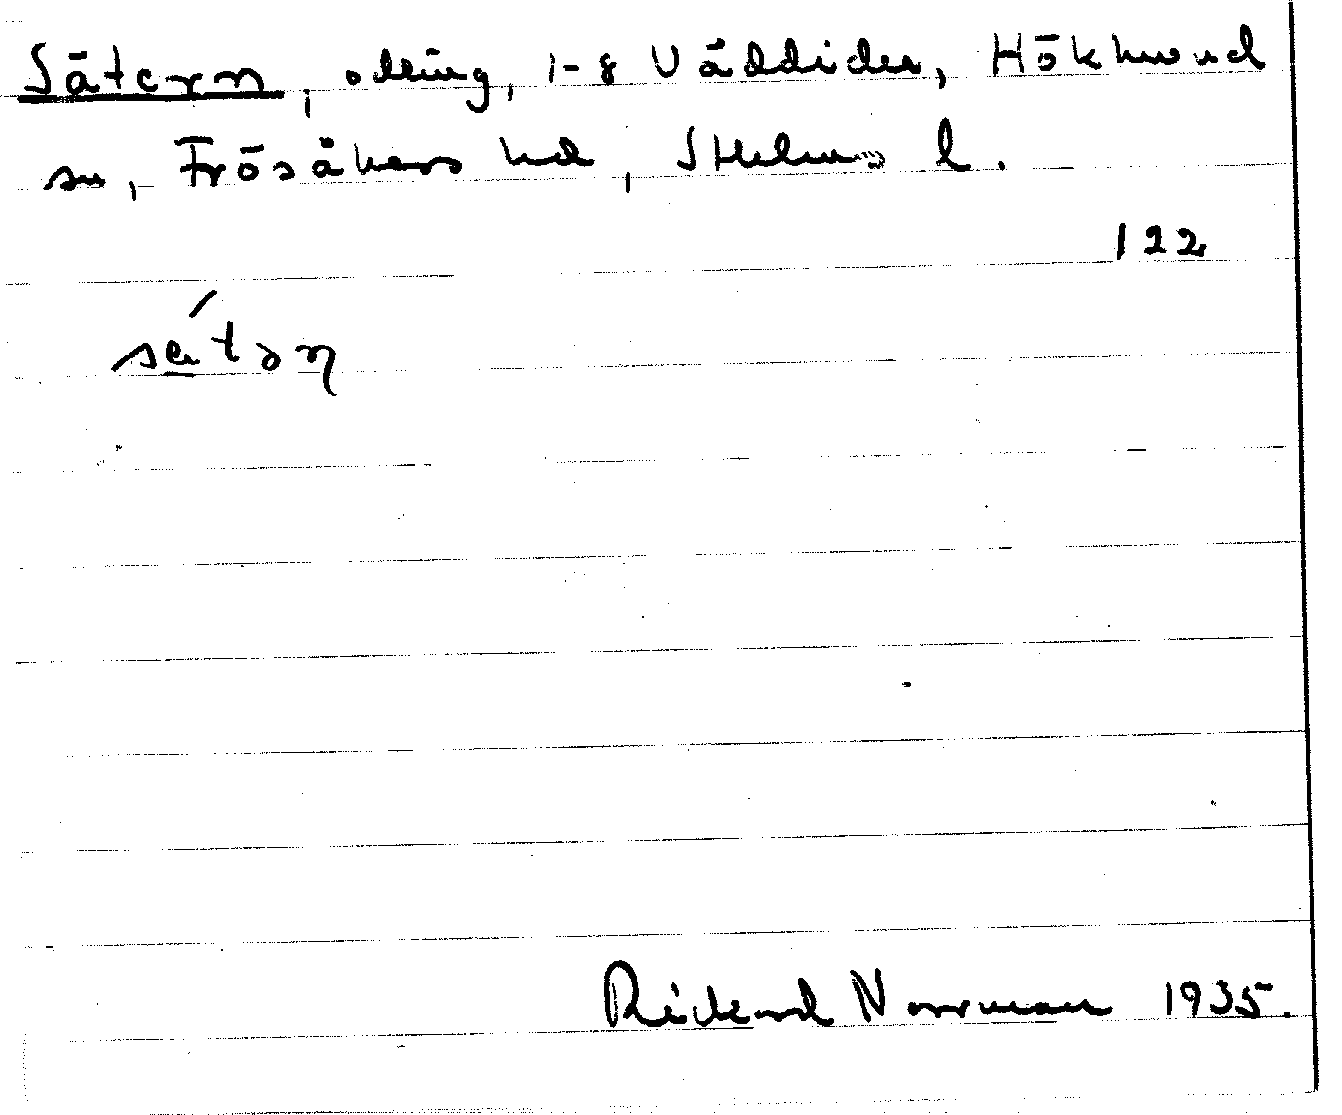 Sätern, odling, 1-8 Väddidu, Hökhuvud
sn, Frösåkers hd, Sthlms l.
122
sätən
Rickard Norrman 1935.